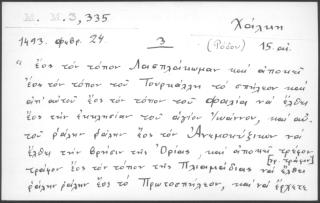 M. M.3, 335
Χάλκη
1493. φυβρ. 24
3
(Ρόδου) 15. αι.
"ἕος τὸν τόπον Λασπλάκωμαν καὶ ἀπεκεῖ
ἕος τὸν τόπον τοῦ Τουρκάλλη τὸ σπήλεον καὶ
ἀπ' αυτοῦ ἕος τὸν τόπον τοῦ φαλία νὰ ἔλθει
ἕος τὴν ἐκκλησίαν τοῦ ἁγίου Ἰωάννου, καὶ αὐ-
τοῦ ῥάχην ῥάχην ἕος τὸν Ἀνεμοκύξινον νὰ
ἔλθει τὴν βρῆσιν τῆς Ὁρίας, καὶ ἀπεκεῖ τρέφον
[γρ. τράφον]
τράφον ἕος τὸν τόπον τῆς Πλιαμεδίας νὰ ἔλθει
ῥάχην ῥάχην ἕος τὸ Πρωτοσπήλεον, καὶ νὰ ἔρχετε